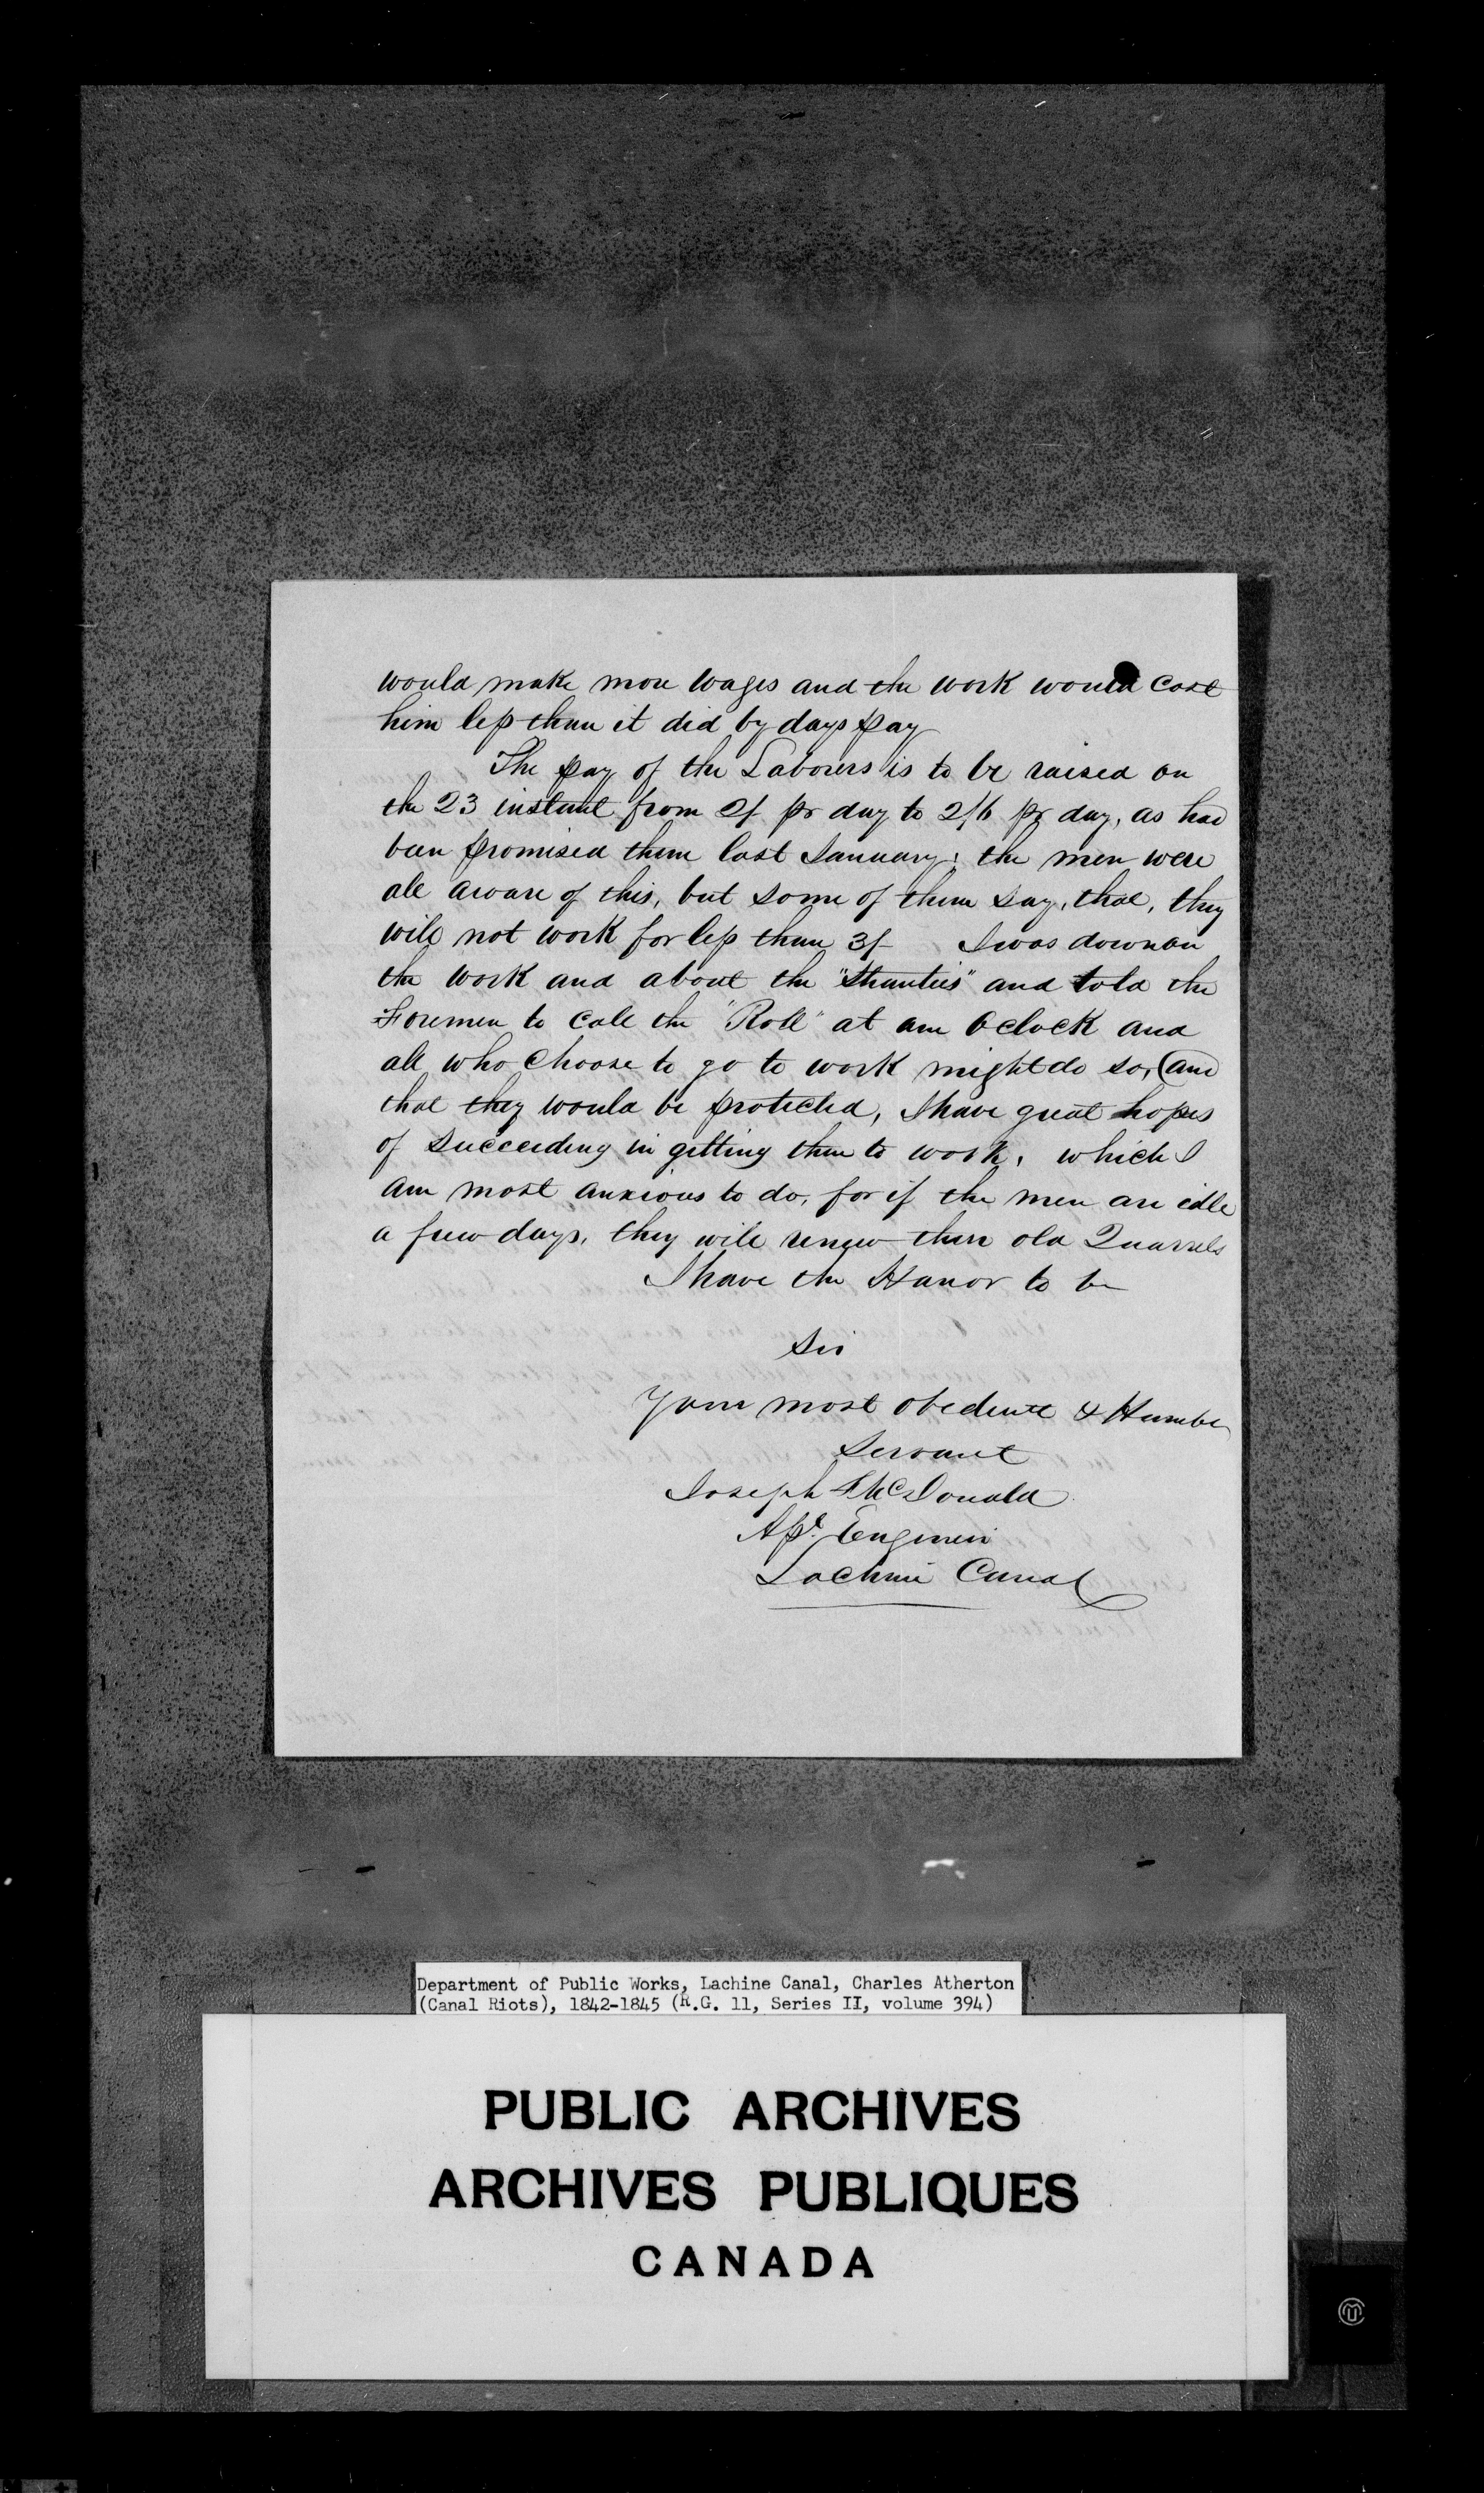 would make more wages and the work would cost
him less than it did by days pay
The pay of the Labourers is to be raised on
the 23 instant from 2/ pr day to 2/6 pr day, as had
been promised them last January; the men were
all aware of this, but some of them say, that, they
will not work for less than 3/ I was down on
the work and about the "Shanties" and told the
Foremen to call the "Roll" at one Oclock and
all who choose to go to work might do so, and
that they would be protected, I have great hopes
of succeeding in getting them to work, which I
am most anxious to do, for if the men are idle
a few days, they will renew their old Quarrels
I have the Honor to be
Sir
Your most obedient & Humbe
Servant
Joseph McDonald
Asst. Engineer
Lachine Canal
Department of Public Works, Lachine Canal, Charles Atherton
(Canal Riots), 1842-1845 (R.G. 11, Series II, volume 394)
PUBLIC ARCHIVES
ARCHIVES PUBLIQUES
CANADA